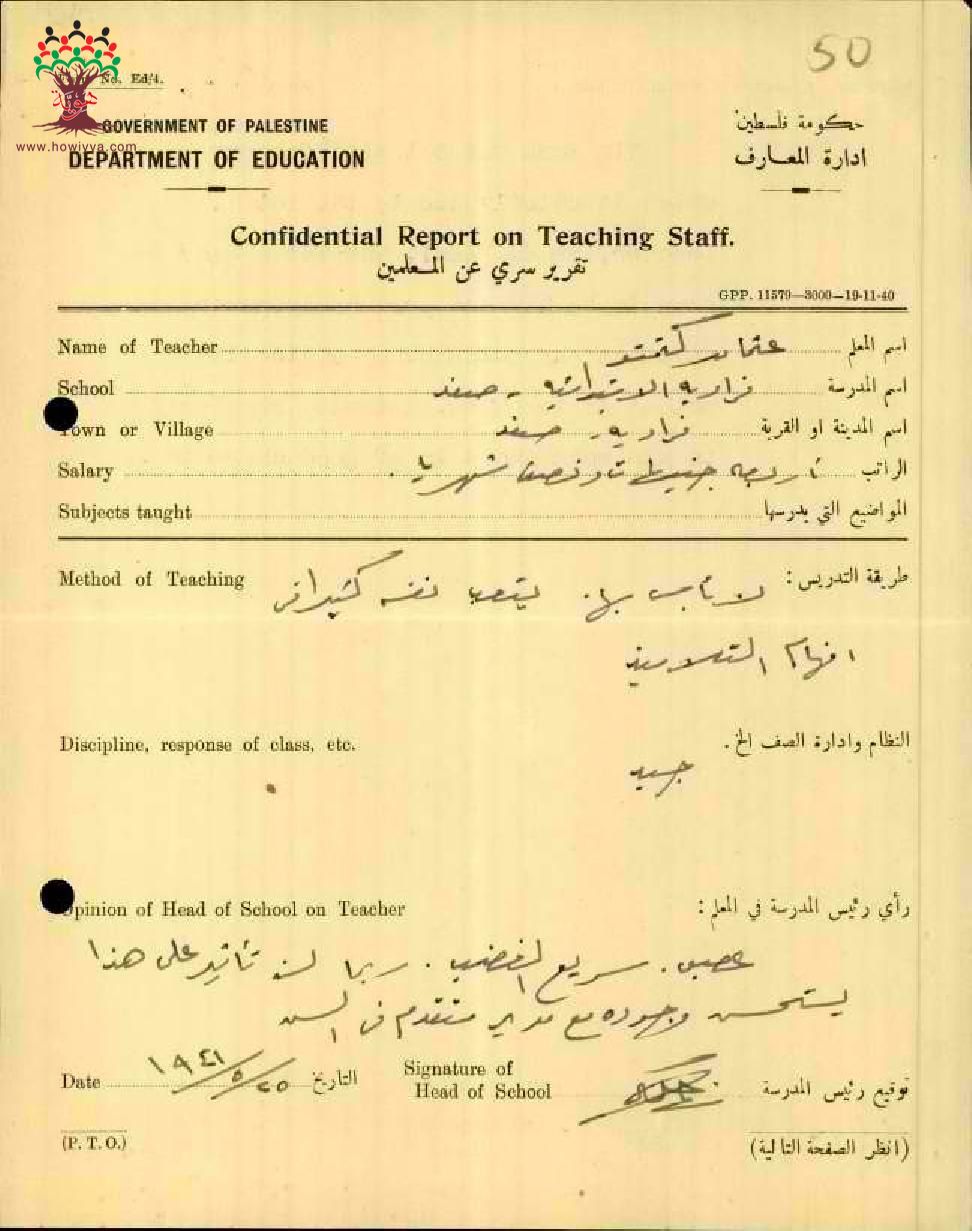 50
No. Ed/4.
www.howiyya.com
هوية
GOVERNMENT OF PALESTINE
DEPARTMENT OF EDUCATION
حكومة فلسطين
ادارة المعارف
Confidential Report on Teaching Staff.
تقرير سري عن المعلمين
GPP. 11579—3000—19-11-40
Name of Teacher عثمان اسم المعلم
School فراديه الابتدائيه - صفد اسم المدرسة
Town or Village فراديه - صفد اسم المدينة او القرية
Salary اربعة جنيهات ونصف شهريا . الراتب
Subjects taught المواضيع التي يدرسها
Method of Teaching طريقة التدريس :
لا بأس بها . يتعب نفسه كثيرا في
افهام التلاميذ
Discipline, response of class, etc. النظام وادارة الصف الخ .
جيد
Opinion of Head of School on Teacher رأي رئيس المدرسة في المعلم :
عصبي . سريع الغضب . ربما لسنه تأثير على هذا
يستحسن وجوده مع مدير متقدم في السن
Date ٢٥/٥/١٩٤١ التاريخ
Signature of
Head of School توقيع رئيس المدرسة
(P. T. O.) (انظر الصفحة التالية)